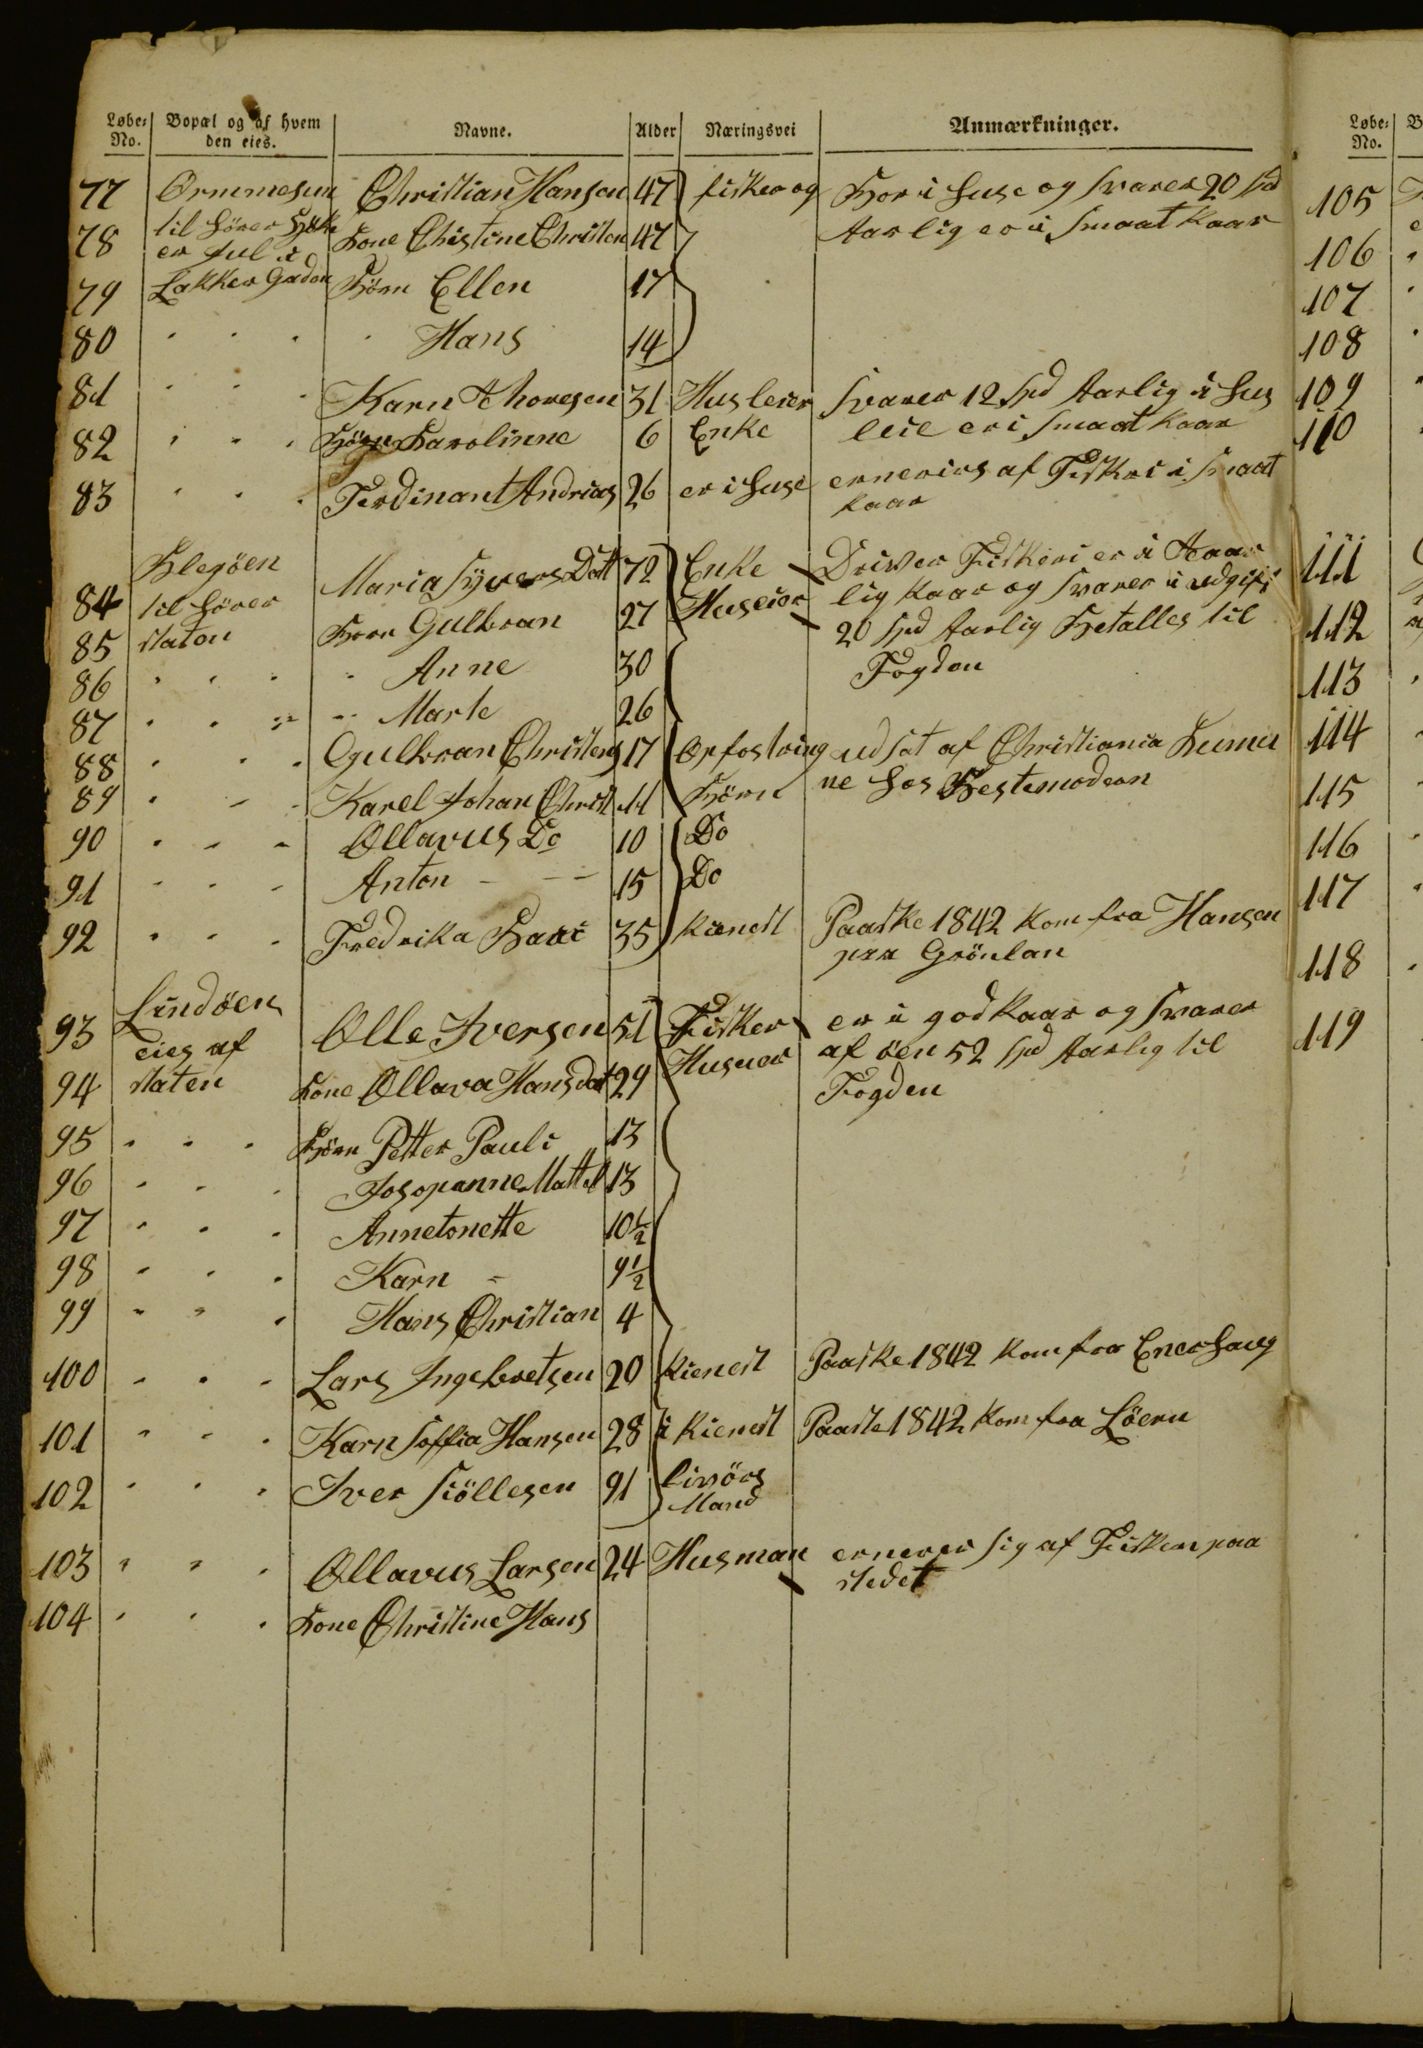 Løbe- No. Bopæl og af hvem den eies. Navne. Alder Næringsvei Anmærkninger.
77 Ormmesun Christian Hansen 47 fisker og Bor i huse og svarer 20 spd
78 til hörer Kone Christine Christen 47 Aarlig er i smaat Kaar
er
79 Lakker Gaden Börn Ellen 17
80 " " " " Hans 14
81 " " " Karn Thoresen 31 Husleier svarer 12 spd Aarlig i hus
82 " " " Börn Karolinne 6 Enke leie er i smaat kaar
83 " " " Ferdinant Andrias 26 er i huse ernerirs af Fiskeri i smaat
kaar
Blegöen
84 til hörer Maria Syvers Datt 72 Enke Driver Fiskeri er i
85 staten Born Gulbran 27 Huseier lig kaar og svarer i udgift
86 " " " " Anne 30 20 spd Aarlig Betalles til
87 " " " " Marte 26 Fogden
88 " " " Gulbran Christens 17 Opfostring udsat af Christiania
89 " " " Karel Johan Christ 11 Börn ne hos Bestemoderen
90 " " " Ollavus Do 10 Do
91 " " " Anton - - - 15 Do
92 " " " Fredrika 35 kienest Paaske 1842 kom fra Hansen
paa Grönlan
Lindöen
93 eies af Olle Iversen 51 Fisker er i god kaar og svarer
94 staten Kone Ollava Hansdat 29 Huseier af öen 52 spd Aarlig til
Fogden
95 " " " Börn Petter Pauli 13
96 " " " Josopanne Mattel 13
97 " " " Annetonette 10½
98 " " " Karn - 9½
99 " " " Hans Christian 4
100 " " " Lars Ingebretsen 20 kienest Paaske 1842 kom fra Enerhaug
101 " " " Karn Soffia Hansen 28 i kienest Paaske 1842 kom fra Löern
102 " " " Iver Siöllesen 91 livörs
Mand
103 " " " Ollavus Larsen 24 Husman ernerer sig af Fiskeri paa
stedet
104 " " " Kone Christine Hans
Løbe- No.
105
106
107
108
109
110
111
112
113
114
115
116
117
118
119